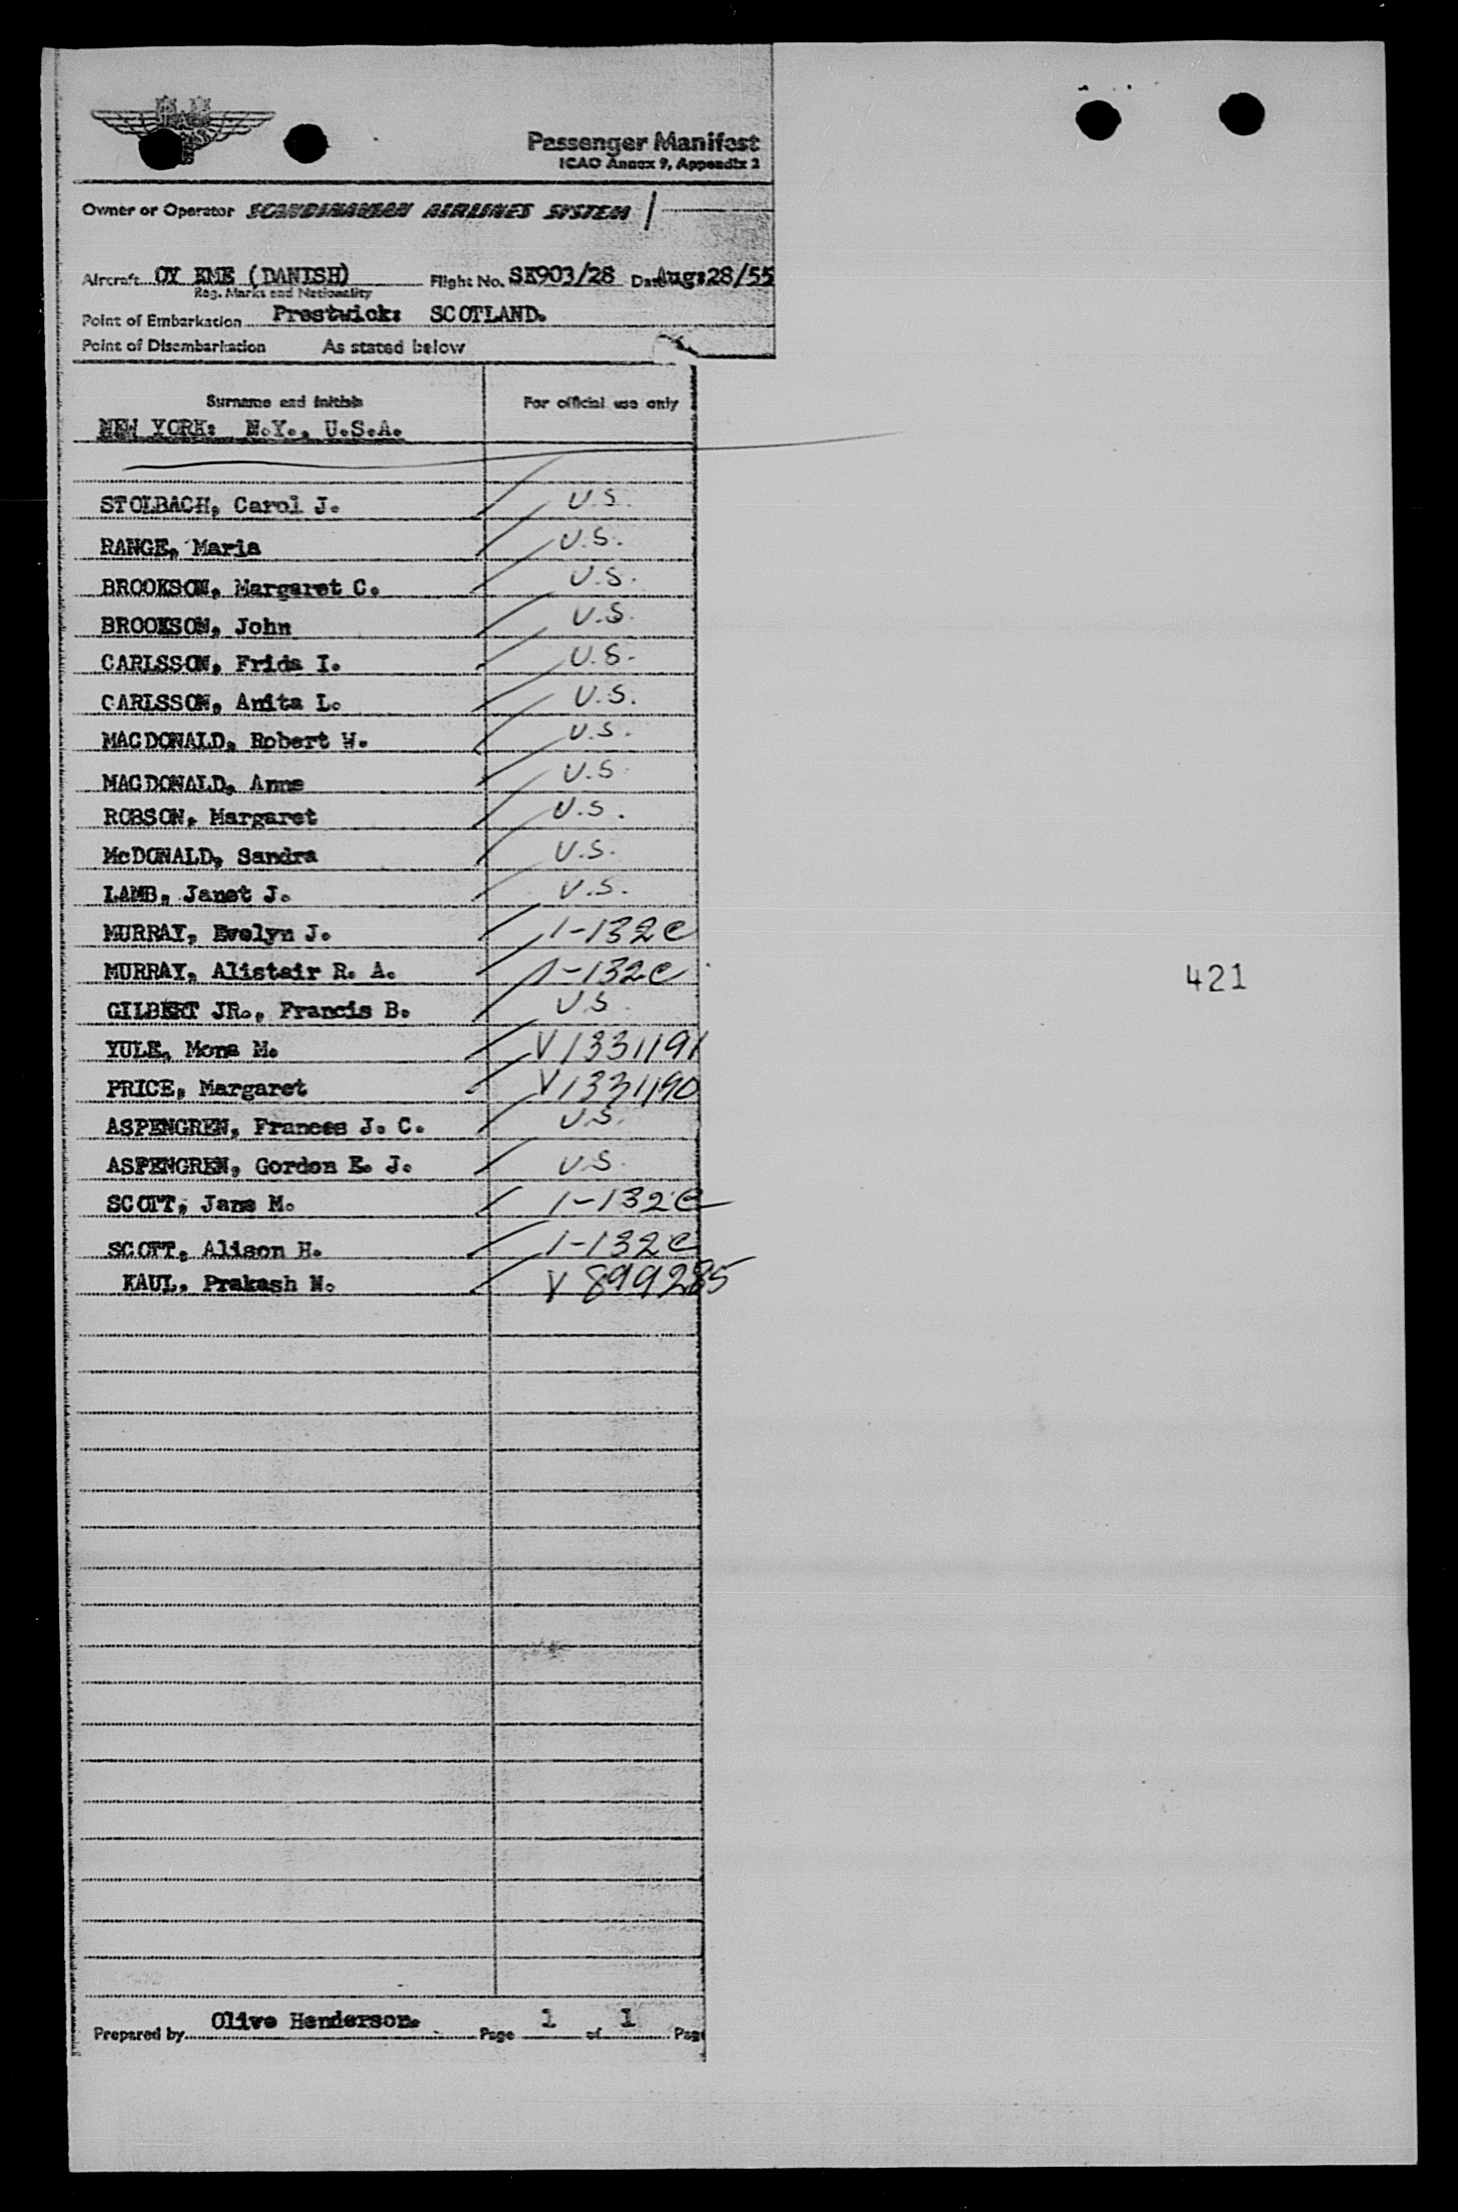 Passenger Manifest
ICAO Annex 9, Appendix 2
Owner or Operator SCANDINAVIAN AIRLINES SYSTEM
Aircraft OY KME (DANISH) Flight No. SK903/28 Date Aug:28/55
Reg. Marks and Nationality
Point of Embarkation Prestwick: SCOTLAND.
Point of Disembarkation As stated below
Surname and initials For official use only
NEW YORK: N.Y., U.S.A.
STOLBACH, Carol J. U.S.
RANGE, Maria U.S.
BROOKSON, Margaret C. U.S.
BROOKSON, John U.S.
CARLSSON, Frida I. U.S.
CARLSSON, Anita L. U.S.
MACDONALD, Robert W. U.S.
MACDONALD, Anne U.S.
ROBSON, Margaret U.S.
McDONALD, Sandra U.S.
LAMB, Janet J. U.S.
MURRAY, Evelyn J. 1-132C
MURRAY, Alistair R. A. 1-132C
421
GILBERT JR., Francis B. U.S.
YULE, Mona M. V1331191
PRICE, Margaret V1331190
ASPENGREN, Frances J. C. U.S.
ASPENGREN, Gordon E. J. U.S.
SCOTT, Jane M. 1-132C
SCOTT, Alison H. 1-132C
KAUL, Prakash N. V 899285
Prepared by Olive Henderson. Page 1 of 1 Page